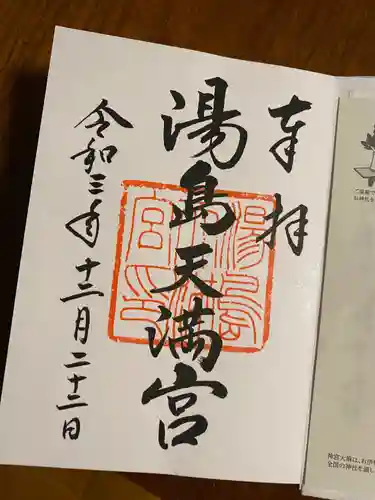 奉拝
湯島天満宮
令和三年十二月二十二日